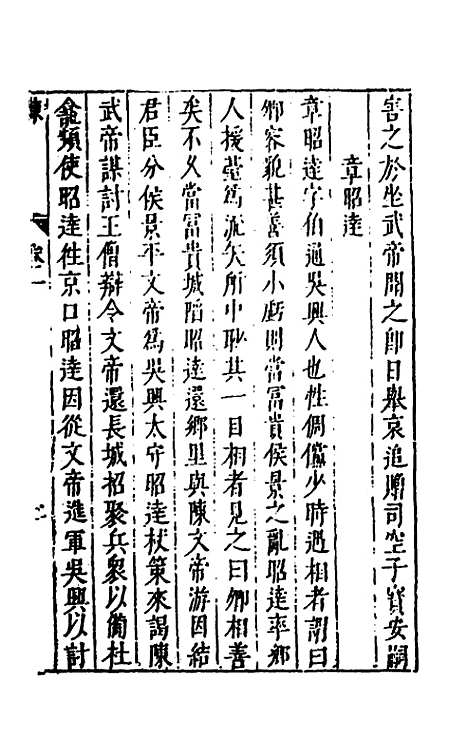 害之於坐武帝聞之即日舉哀追贈司空子寶安嗣
章昭達
章昭達字伯通吳興人也性倜儻少時遇相者謂曰
卿容貌甚善須小虧則當富貴侯景之亂昭達率鄉
人援臺爲流矢所中眇其一目相者見之曰卿相善
矣不久當富貴城陷昭達還鄉里與陳文帝游因結
君臣分侯景平文帝爲吳興太守昭達杖策來謁陳
武帝謀討王僧辯令文帝還長城招聚兵衆以備杜
龕頻使昭達徃京口昭達因從文帝進軍吳興以討